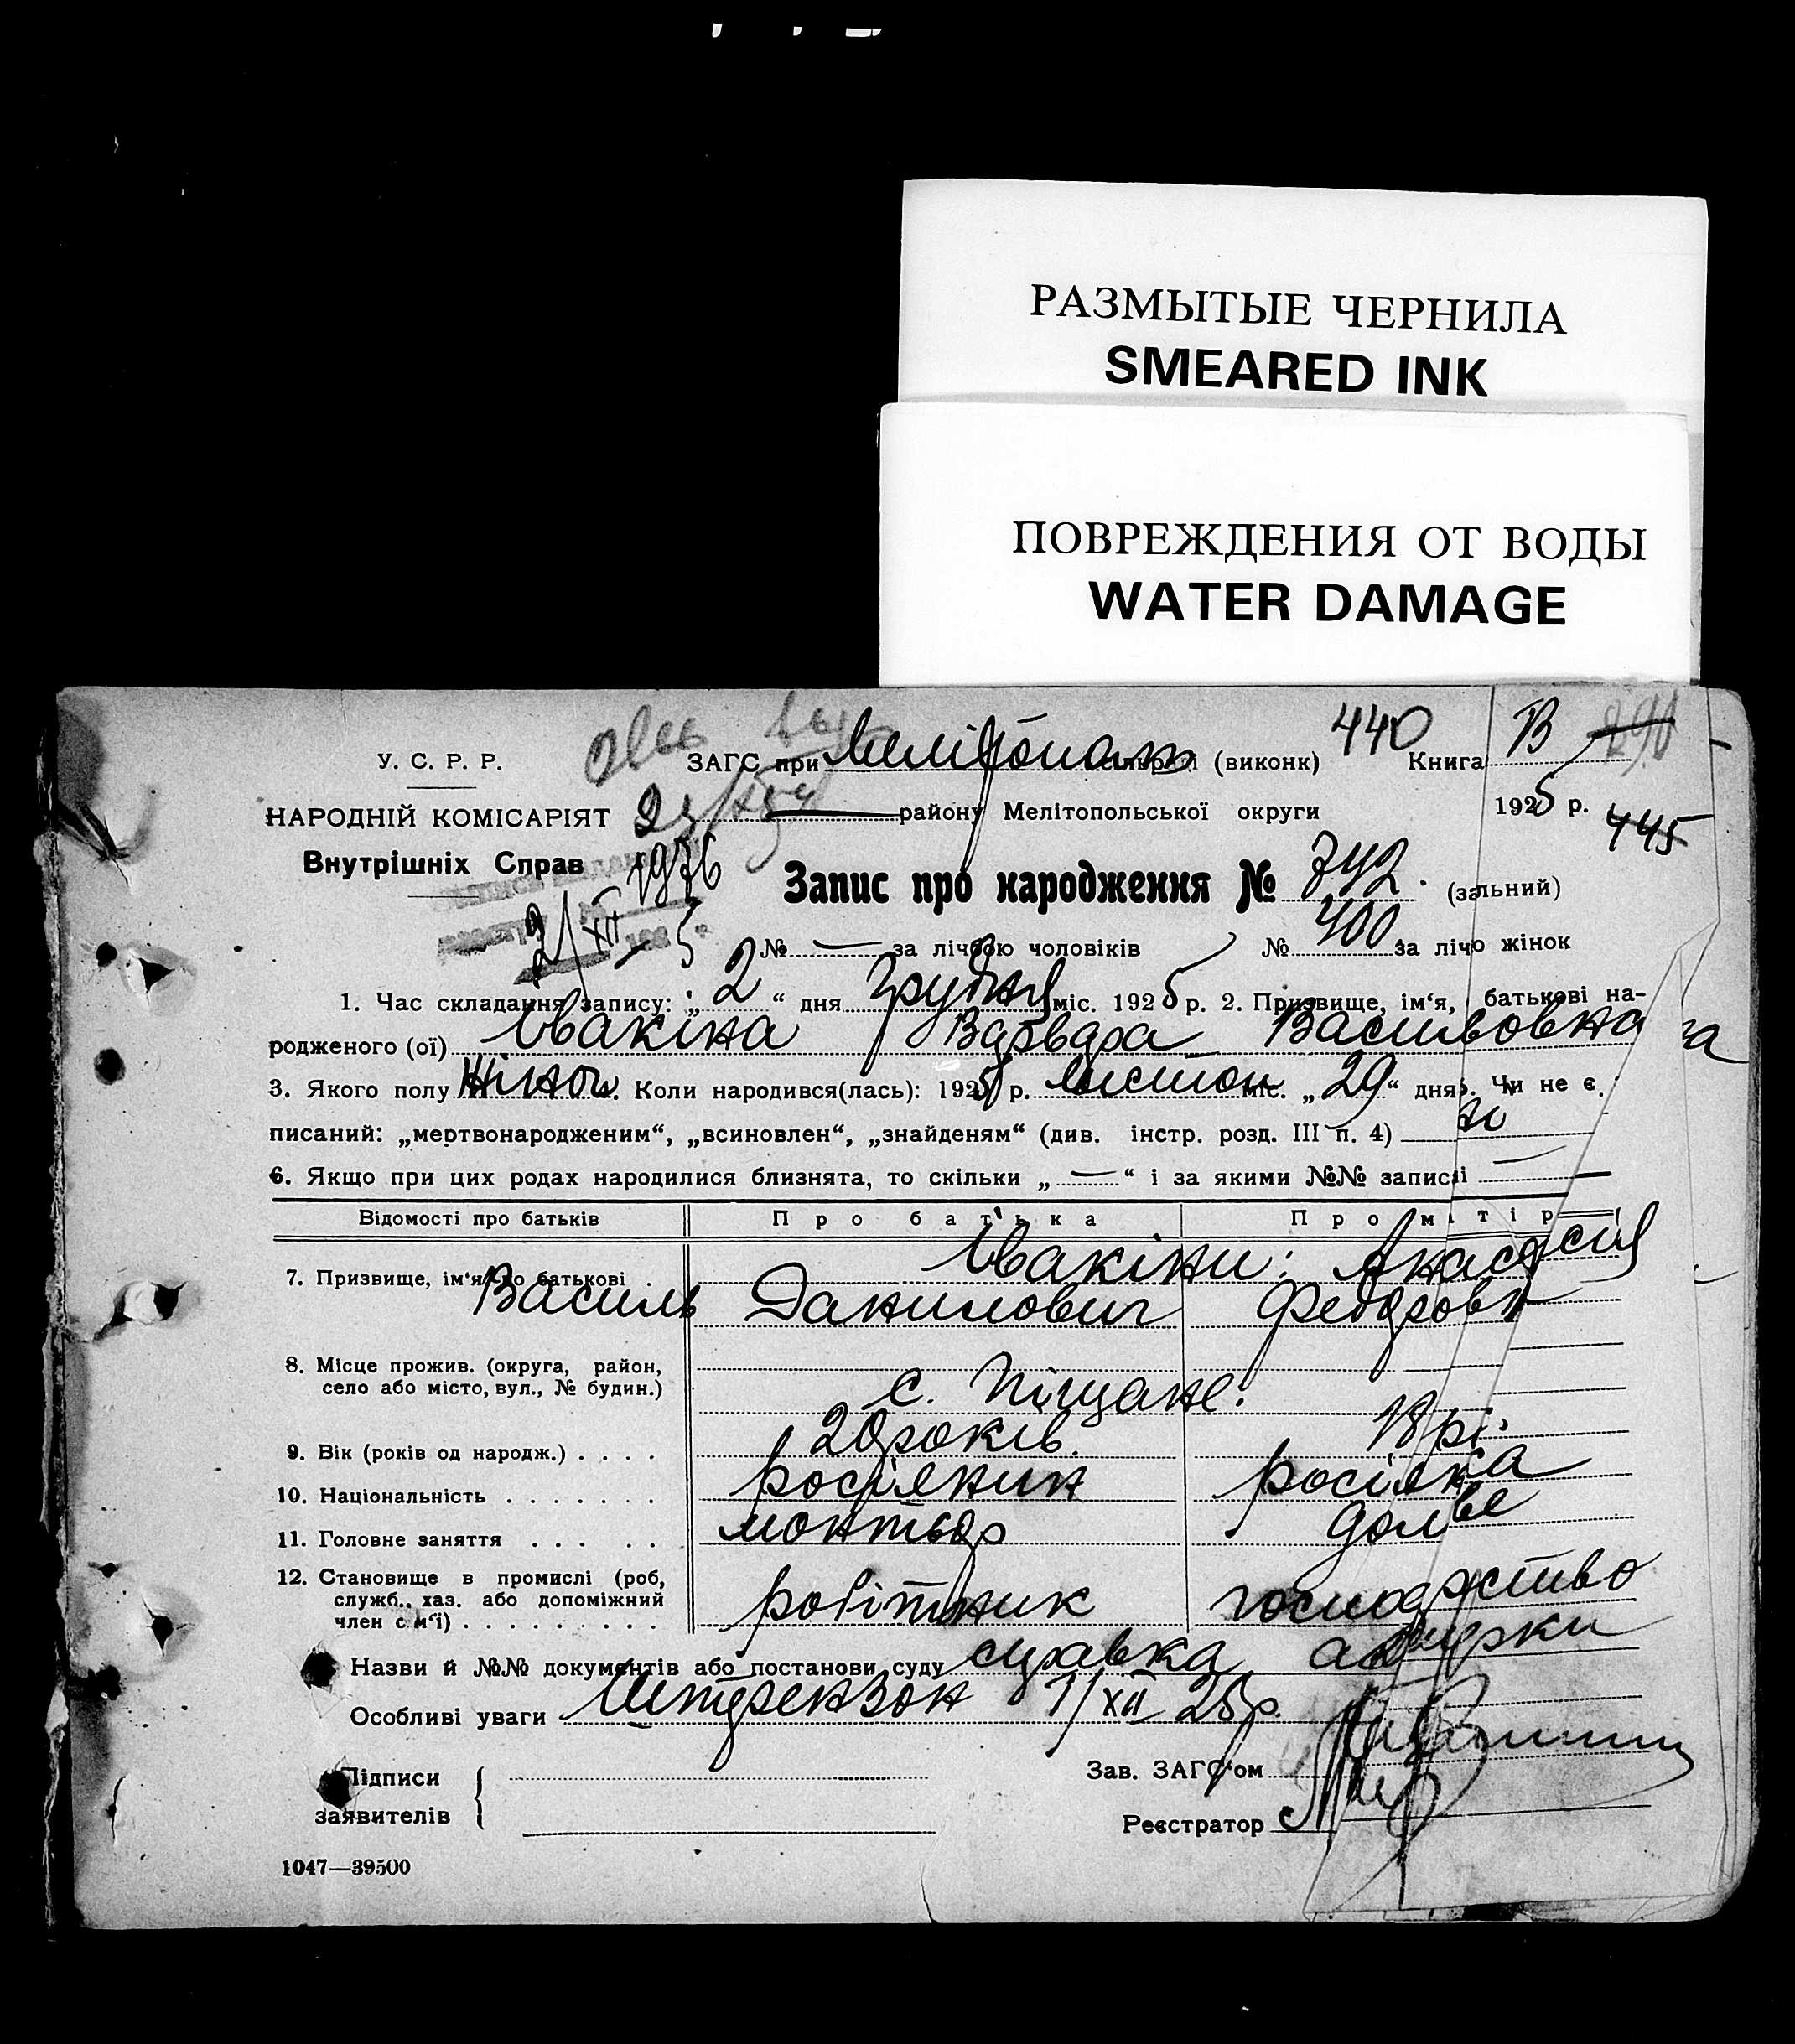 РАЗМЫТЫЕ ЧЕРНИЛА
SMEARED INK
ПОВРЕЖДЕНИЯ ОТ ВОДЫ
WATER DAMAGE
440 В 290
У. С. Р. Р. ЗАГС при (виконк) Книга
НАРОДНІЙ КОМІСАРІЯТ району Мелітопольської округи 1925 р. 445
Внутрішніх Справ 1976
Запис про народження № 742. (за льний)
2/XII 5 № — за лічбою чоловіків № 400 за лічо жінок
1. Час складання запису: „2“ дня Грудня міс. 1925 р. 2. Призвище, ім‘я, батькові на-
родженого (ої) Івакіна Варвара Васильовна
3. Якого полу Жіноч. Коли народився(лась): 1925 р. міс. „29“ дня. Чи не є
писаний: „мертвонародженим“, „всиновлен“, „знайденям“ (див. інстр. розд. III п. 4)
6. Якщо при цих родах народилися близнята, то скільки „—“ і за якими №№ записі —
Відомості про батьків Про батька Про матір
7. Призвище, ім‘я по батькові Івакіни: Анастасія
Василь Данилович Федоровн
8. Місце прожив. (округа, район,
село або місто, вул., № будин.) с. Піщане.
9. Вік (років од народж.) . . . . 20 років. 18 рі.
10. Національність . . . . . . . росіянин росіяка
11. Головне заняття . . . . . монтьор
12. Становище в промислі (роб,
служб., хаз. або допоміжний
член сім‘ї) . . . . . . . . . робітник господарство
Назви й №№ документів або постанови суду справка акушерки
Особливі уваги Штрензон 1/XII 25 р.
Підписи
заявителів
Зав. ЗАГС‘ом
Реєстратор
1047—39500